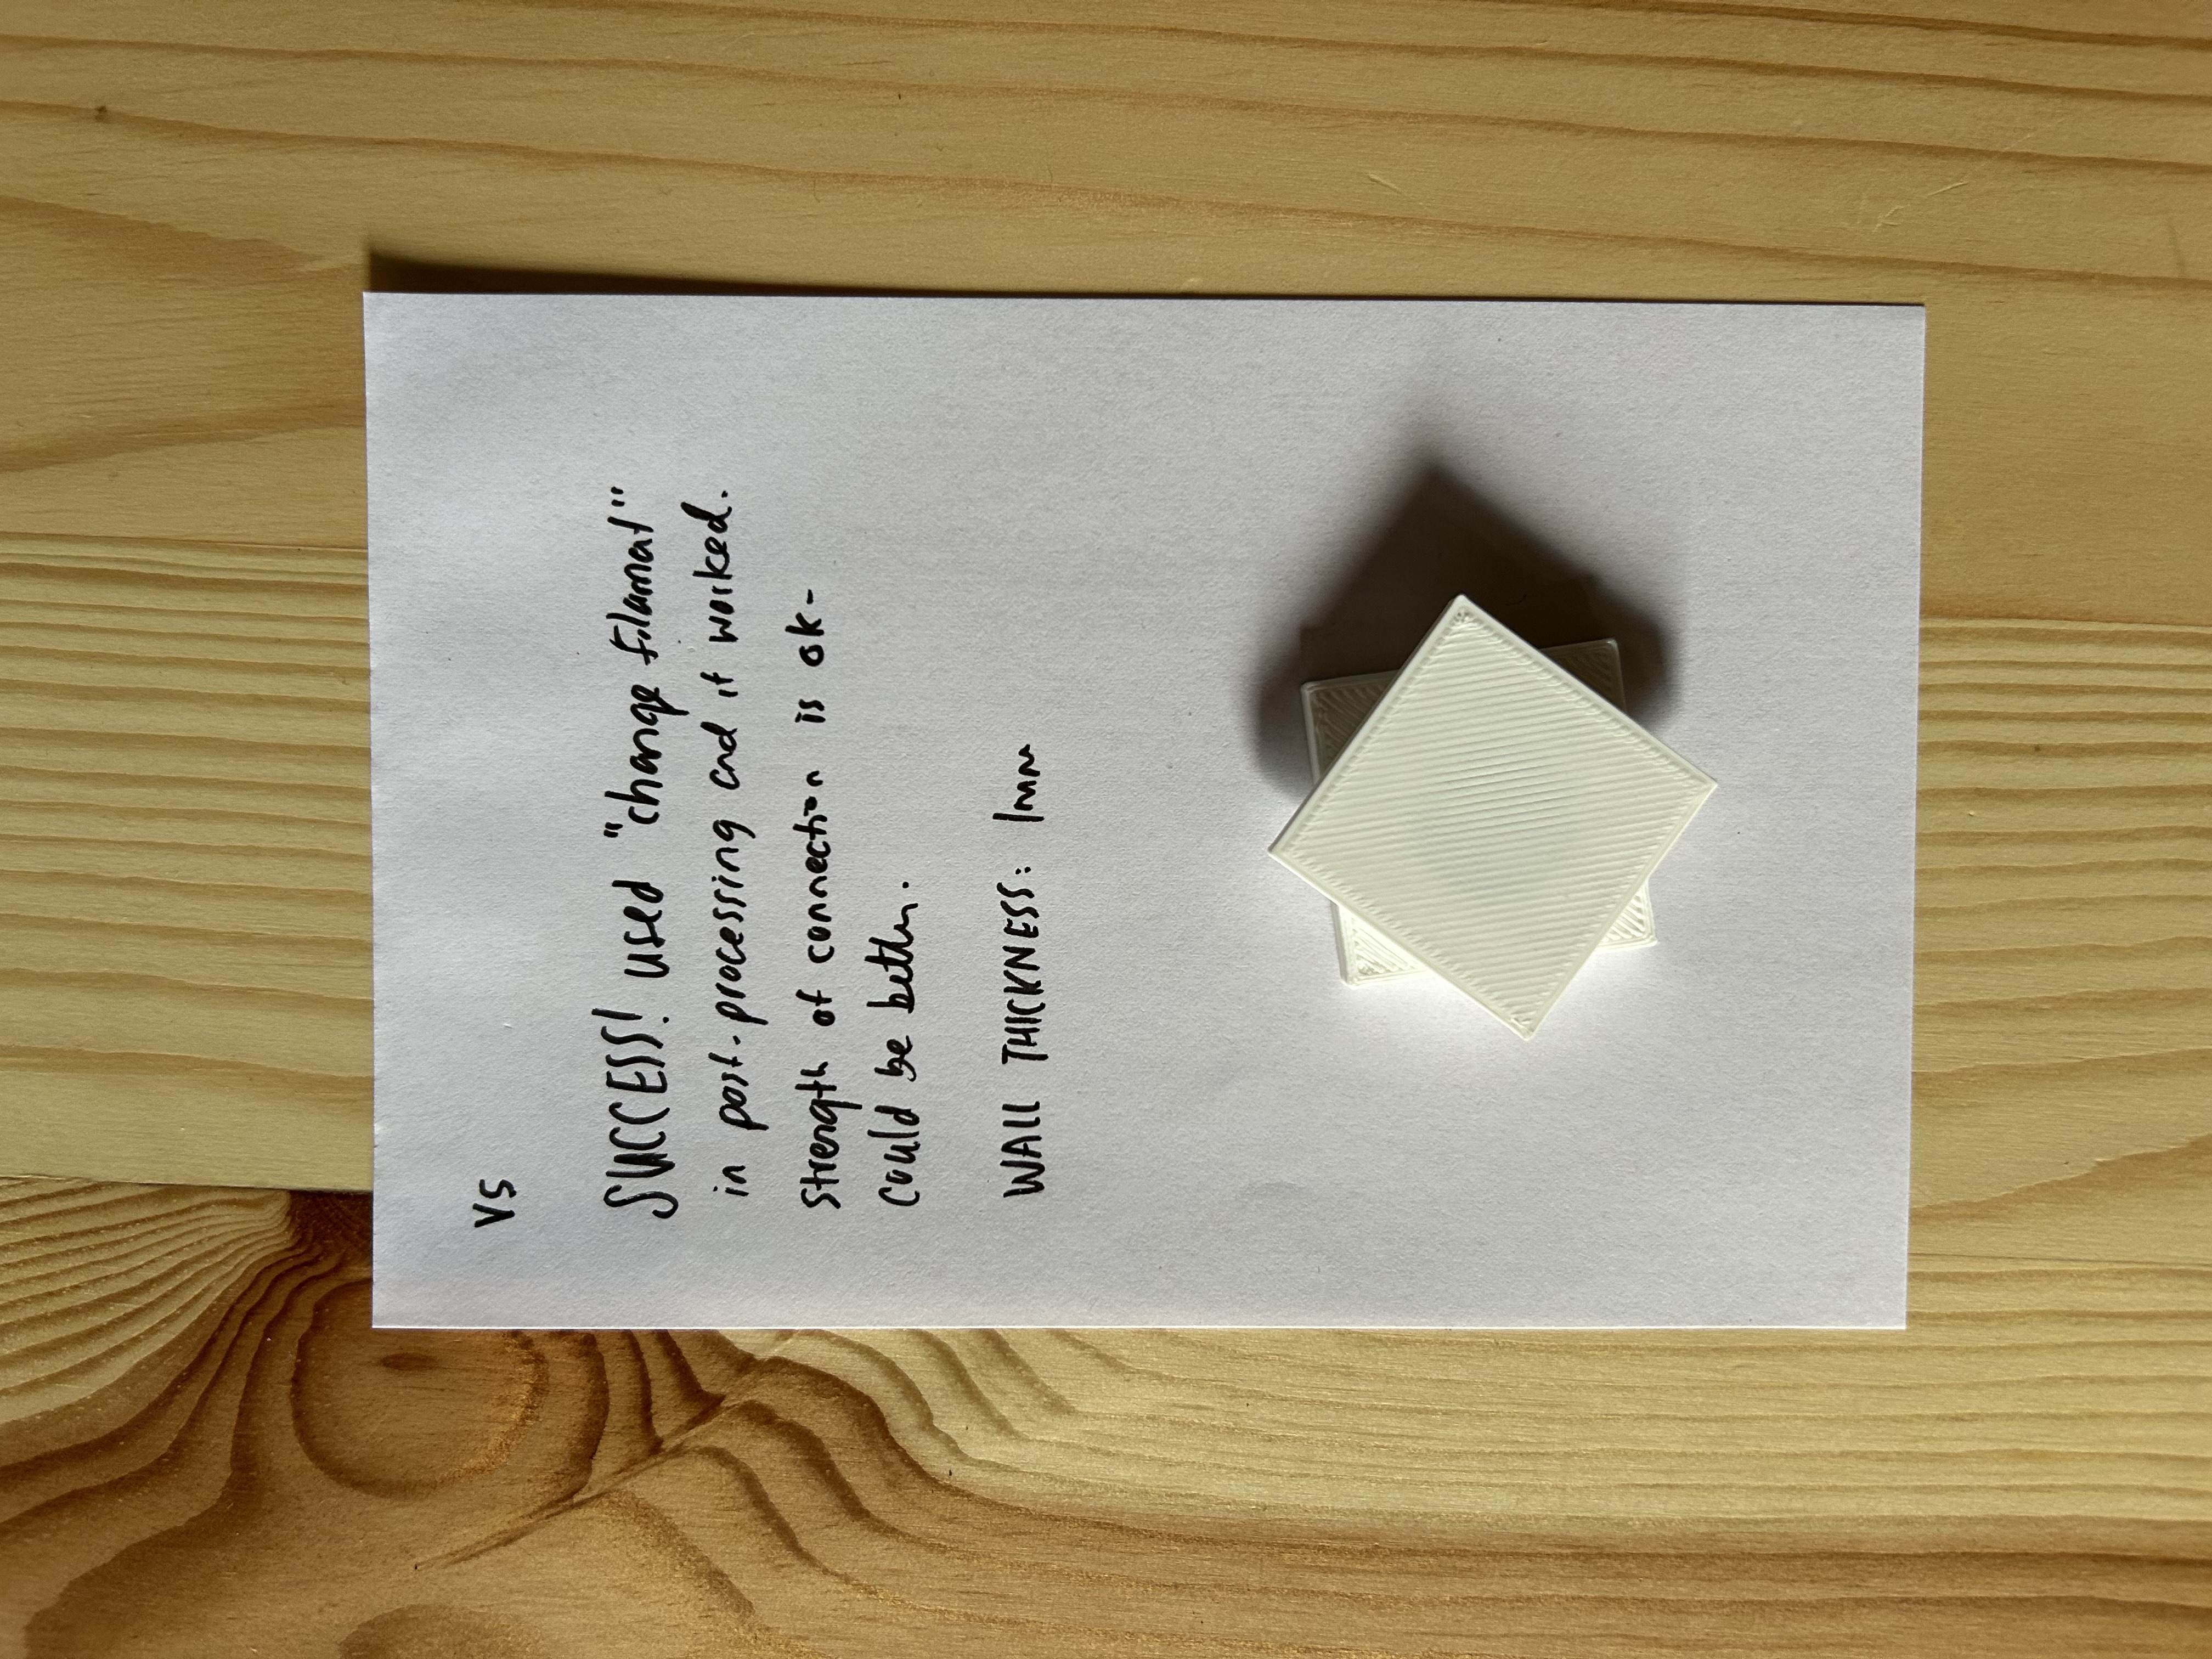 V5
SUCCESS! used "change filamat"
in post-processing and it worked.
strength of connection is ok-
could be better.
WALL THICKNESS: 1mm